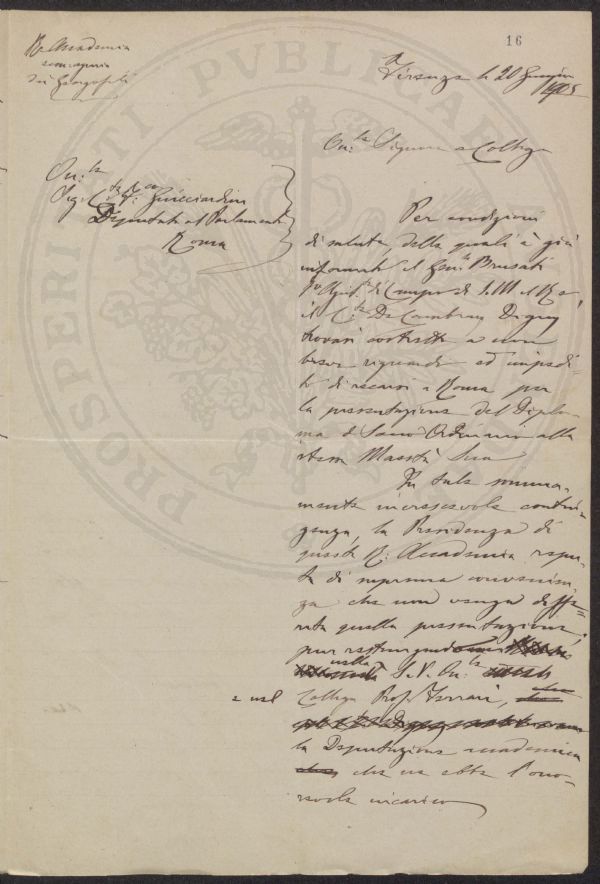 16
R. Accademia
economica
dei Georgofili
Firenze li 20 Giugno
1905
On.le Signore e Collega
On.le
Sig. C.te F. Guicciardini
Deputato al Parlamento
Roma
Per condizioni
di salute, delle quali è già
informato il Gen.le Brusati
1º Ajut.e di Campo di S. M. il Re,
il C.te De Cambray Digny
trovasi costretto a non
brevi riguardi ed impedi-
to di recarsi a Roma per
la presentazione del Diplo-
ma di Socio Ordinario alla
stessa Maestà Sua
In tale somma-
mente incresciosa contin-
genza, la Presidenza di
questa R. Accademia reputa
di suprema convenien-
za che non venga diffe-
rita quella presentazione,
pur raffigurando
nella S. V. On.le
e nel Collega Prof. Ferrari,
la Deputazione accademica
che ne ebbe l'ono-
revole incarico
PROSPERITATI PUBLICAE